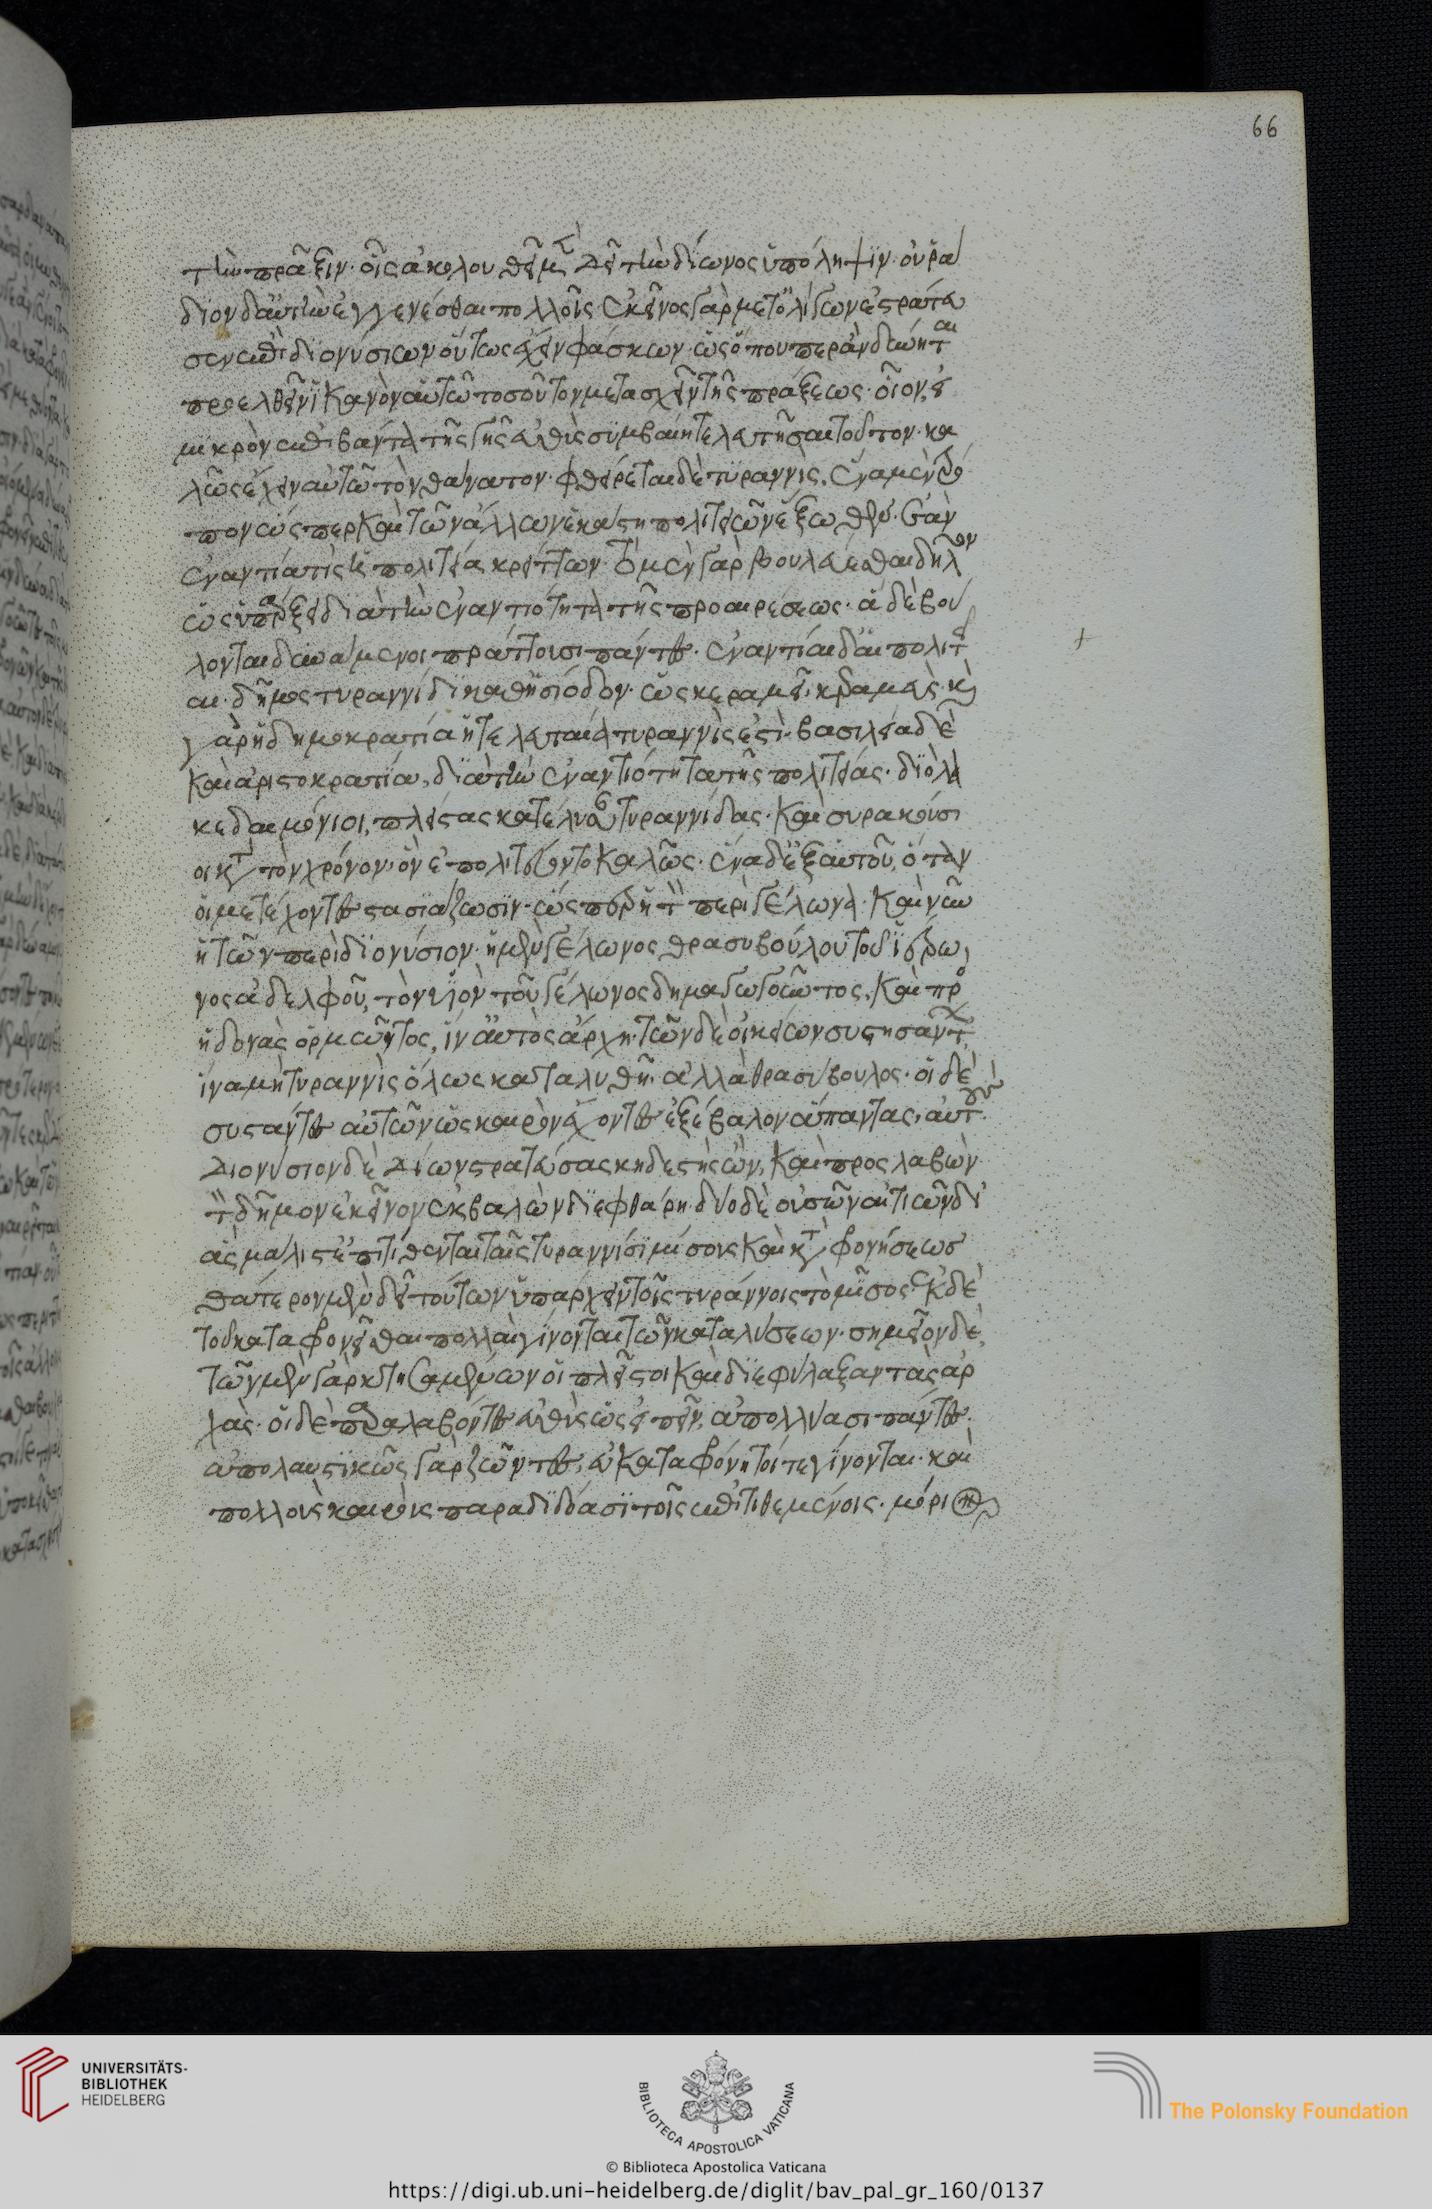 τὴν πρᾶξιν· οἷς ἀκολουθεῖ μὲν δεῖ τὴν δίωνος ὑπόληψιν· οὐ ρά
διον δαὐτὴν ἐγγενέσθαι πολλοῖς· ἐκεῖνος γὰρ μετ' ὀλίγων ἐστράτευ
σεν ἐπὶ διονύσιον οὕτως ἔχειν φάσκων· ὡς ὅπου περ ἂν δύνηται
προελθεῖν ἱκανὸν αὐτῶ τοσοῦτον μετασχεῖν τῆς πράξεως· οἷον, εἰ
μικρὸν ἐπιβάντα τῆς γῆς εὐθὺς συμβαίη τελευτῆσαι τοῦτον· κα
λῶς ἔχειν αὐτῶ τὸν θάνατον· φθείρεται δὲ τυραννὶς, ἕνα μὲν τρό
πον ὥσπερ καὶ τῶν ἄλλων ἑκάστη πολιτειῶν ἔξωθεν· ἐὰν
ἐναντία τίς ἦ πολιτεία κρείττων· τὸ μὲν γὰρ βούλεσθαι δῆλον
ὡς ὑπάρξει διὰ τὴν ἐναντιότητα τῆς προαιρέσεως· ἃ δὲ βού
λονται δυνάμενοι πράττουσι πάντες· ἐναντίαι δ' αἱ πολιτεῖ
αι· δῆμος τυραννίδι καθ' ἡσιόδον· ὡς κεραμεῖ κεραμεύς· καὶ
γὰρ ἡ δημοκρατία ἡ τελευταία τυραννίς ἐστὶ· βασιλεία δὲ
καὶ ἀριστοκρατία, διὰ τὴν ἐναντιότητα τῆς πολιτείας· διὸ λα
κεδαιμόνιοι, πλείστας κατέλυσαν τυραννίδας· καὶ συρακούσι
οι κατὰ τὸν χρόνον ὃν ἐπολιτεύοντο καλῶς· ἕνα δ' ἐξ αὑτοῦ, ὅταν
οἱ μετέχοντες στασιάζωσιν· ὥσπερ ἡ τῶν περὶ γέλωνα· καὶ νῦν
ἡ τῶν περὶ διονύσιον· ἡ μὲν γέλωνος θρασυβούλου τοῦ ἱέρω
νος ἀδελφοῦ, τὸν υἱὸν τοῦ γέλωνος δημαγωγοῦντος, καὶ πρὸς
ἡδονὰς ὁρμῶντος, ἵν' αὐτὸς ἄρχη· τῶν δὲ οἰκείων συστησάντων
ἵνα μὴ τυραννὶς ὅλως καταλυθῆ· ἀλλὰ θρασύβουλος· οἱ δὲ
συστάντες αὐτῶν ὡς καιρὸν ἔχοντες ἐξέβαλον ἅπαντας, αὐτούς·
Διονύσιον δὲ Δίων στρατεύσας κηδεστὴς ὢν, καὶ προσλαβὼν
τὸν δῆμον ἐκεῖνον ἐκβαλὼν διεφθάρη· δύο δὲ οὐσῶν αἰτιῶν δι'
ἃς μάλιστ' ἐπιτίθενται ταῖς τυραννίσι μίσους καὶ καταφρονήσεως
θάτερον μὲν δεῖ τούτων ὑπάρχειν τοῖς τυράννοις τὸ μῖσος· ἐκ δὲ
τοῦ καταφρονεῖσθαι πολλαὶ γίνονται τῶν καταλύσεων· σημεῖον δέ,
τῶν μὲν γὰρ κτησαμένων οἱ πλεῖστοι καὶ διεφύλαξαν τὰς ἀρ
χάς· οἱ δὲ παραλαβόντες εὐθὺς ὡς εἰπεῖν, ἀπολλύασι πάντες·
ἀπολαυστικῶς γὰρ ζῶντες, εὐκαταφρόνητοί τε γίνονται· καὶ
πολλοὺς καιροὺς παραδιδόασι τοῖς ἐπιτιθεμένοις· μόριον
66
UNIVERSITÄTS-
BIBLIOTHEK
HEIDELBERG
BIBLIOTECA APOSTOLICA VATICANA
The Polonsky Foundation
© Biblioteca Apostolica Vaticana
https://digi.ub.uni-heidelberg.de/diglit/bav_pal_gr_160/0137